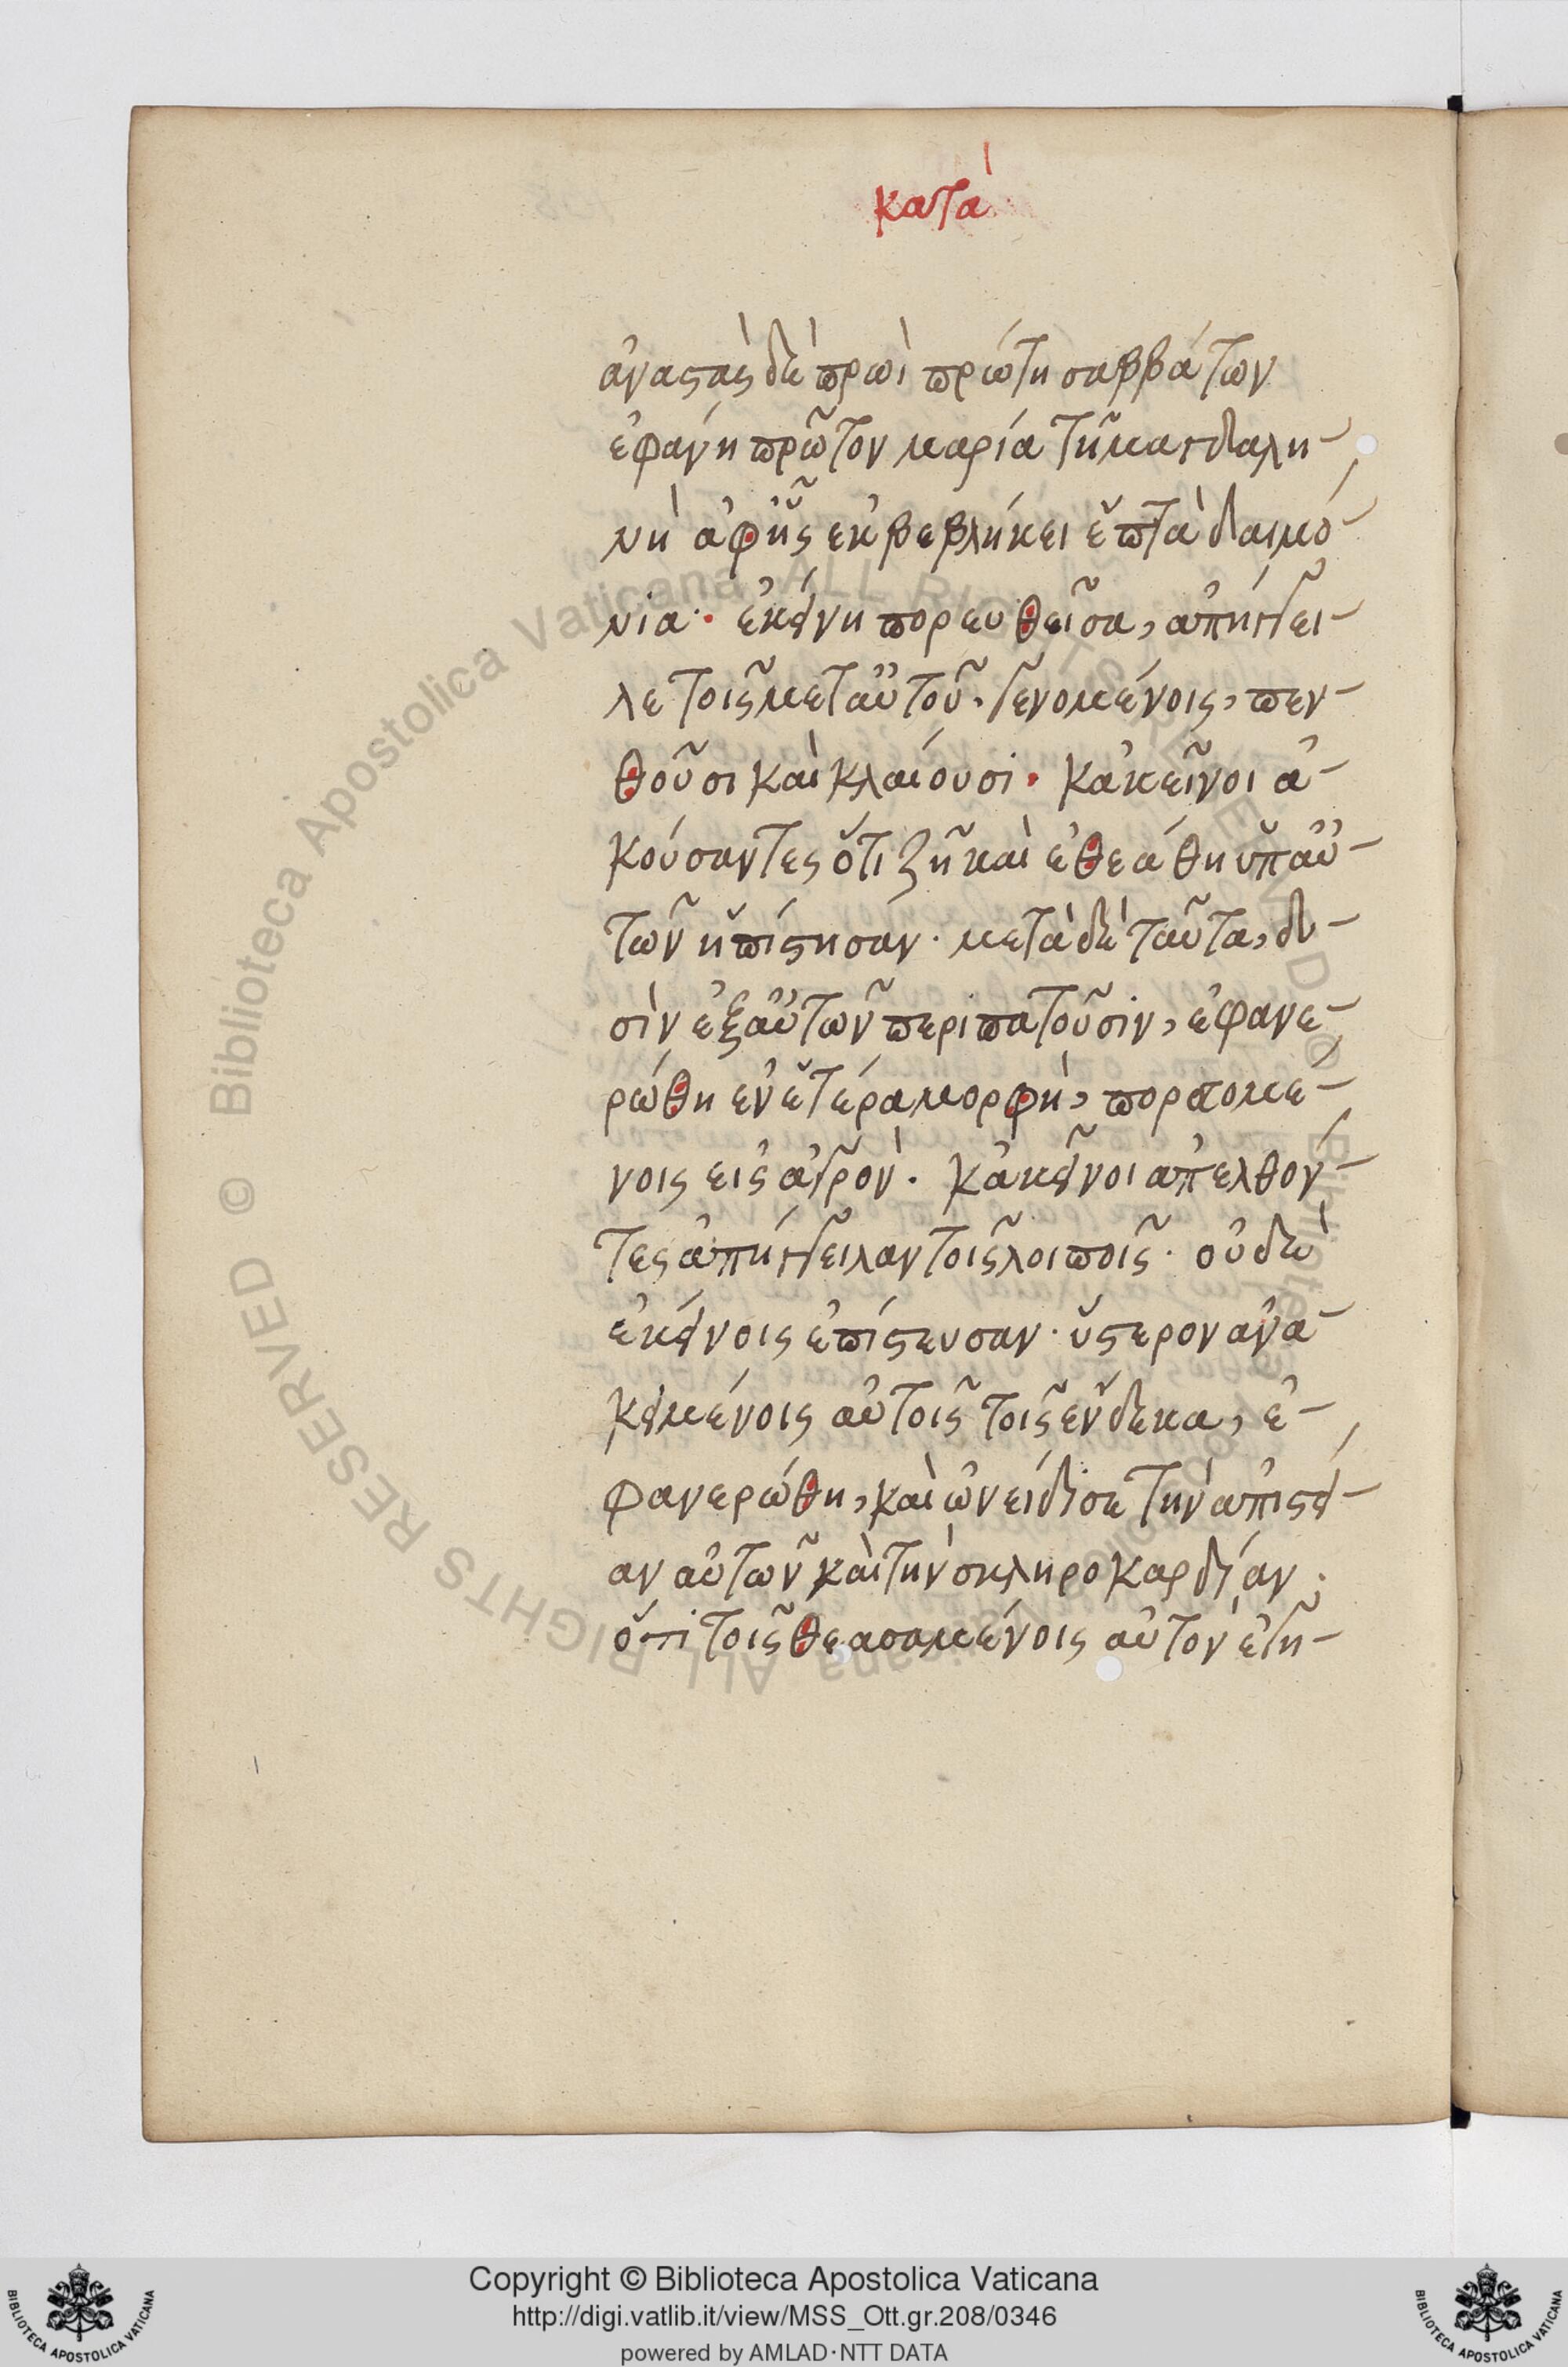 κατὰ
ἀναστὰς δὲ πρωὶ πρώτη σαββάτων
ἐφάνη πρῶτον μαρία τῆ μαγδαλη-
νὴ ἀφ᾽ ἧς ἐκβεβλήκει ἕπτὰ δαιμό-
νια· ἐκείνη πορευθεῖσα, ἀπήγγει-
λε τοῖς μετ᾽ αὐτοῦ· γενομένοις, πεν-
θοῦσι καὶ κλαίουσι· κἀκεῖνοι ἀ-
κούσαντες ὅτι ζῆ καὶ ἐθεάθη ὑπ᾽ αὐ-
τῶν ἠπίστησαν· μετὰ δὲ ταῦτα, δυ-
σὶν ἐξ αὐτῶν περιπατοῦσιν, ἐφανε-
ρώθη ἐν ἑτέρα μορφὴ, πορευομέ-
νοις εἰς ἀγρὸν· κἀκεῖνοι ἀπελθόν-
τες ἀπήγγειλαν τοῖς λοιποῖς· οὐδὲ
ἐκείνοις ἐπίστευσαν· ὕστερον ἀνα-
κειμένοις αὐτοῖς τοῖς ἕνδεκα, ἐ-
φανερώθη, καὶ ὠνείδισε τὴν ἀπιστεί-
αν αὐτῶν καὶ τὴν σκληροκαρδίαν·
ὅτι τοῖς θεασαμένοις αὐτὸν ἐγη-
Copyright © Biblioteca Apostolica Vaticana
http://digi.vatlib.it/view/MSS_Ott.gr.208/0346
powered by AMLAD·NTT DATA
BIBLIOTECA APOSTOLICA VATICANA
BIBLIOTECA APOSTOLICA VATICANA
© Biblioteca Apostolica Vaticana ALL RIGHTS RESERVED © Biblioteca Apostolica Vaticana ALL RIGHTS RESERVED